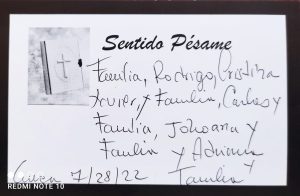 Sentido Pésame
Familia, Rodrigo, Cristina
Xavier, y Familia, Carlos y
Familia, Johoana y
Familia y Adriana y
Cuenca 7/28/22 Familia
REDMI NOTE 10